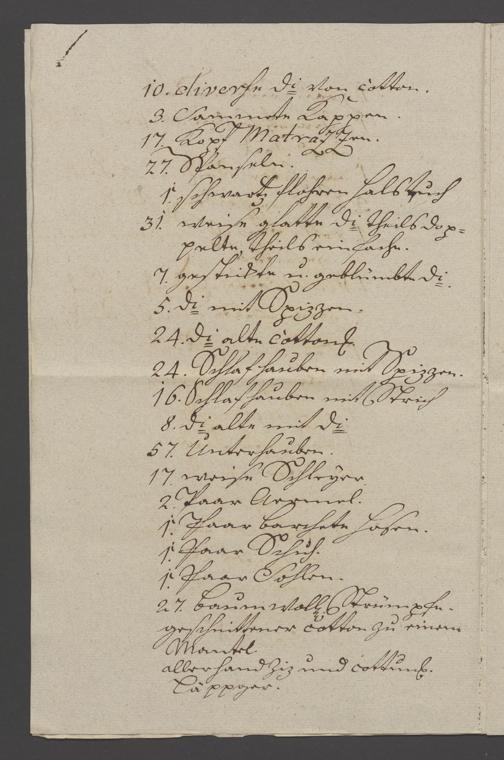 10. diverse di von cotton.
3. Sammete Kappen.
17. Kopf Matrazzen.
27. Bänseln.
1. schwartz flohren Halstuch
31. weise glatte di, theils dop=
pelte, theils einfache.
7. gestickte u. geblümbte di.
5. di mit Spizzen.
24. di alte cottone.
24. Schlafhauben mit Spizzen.
16. Schlafhauben mit Strich
8. di alte mit di
57. Unterhauben.
17. weise Schleyer
2. Paar Aermel.
1. Paar barchete Hosen.
1. Paar Schuh.
1. Paar Sohlen.
27. baumwoll. Strümpfe.
geschnittener Cotton zu einem
Mantel
allerhand Ziz und cottune
Läppger.